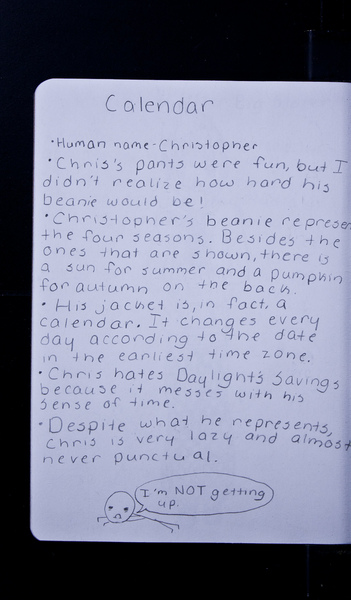 Calendar
• Human name - Christopher
• Chris's pants were fun, but I
didn't realize how hard his
beanie would be!
• Christopher's beanie represen
the four seasons. Besides the
ones that are shown, there is
a sun for summer and a pumpkin
for autumn on the back.
• His jacket is, in fact, a
calendar. It changes every
day according to the date
in the earliest time zone.
• Chris hates Daylight's Savings
because it messes with his
sense of time.
• Despite what he represents,
Chris is very lazy and almost
never punctual.
I'm NOT getting
up.